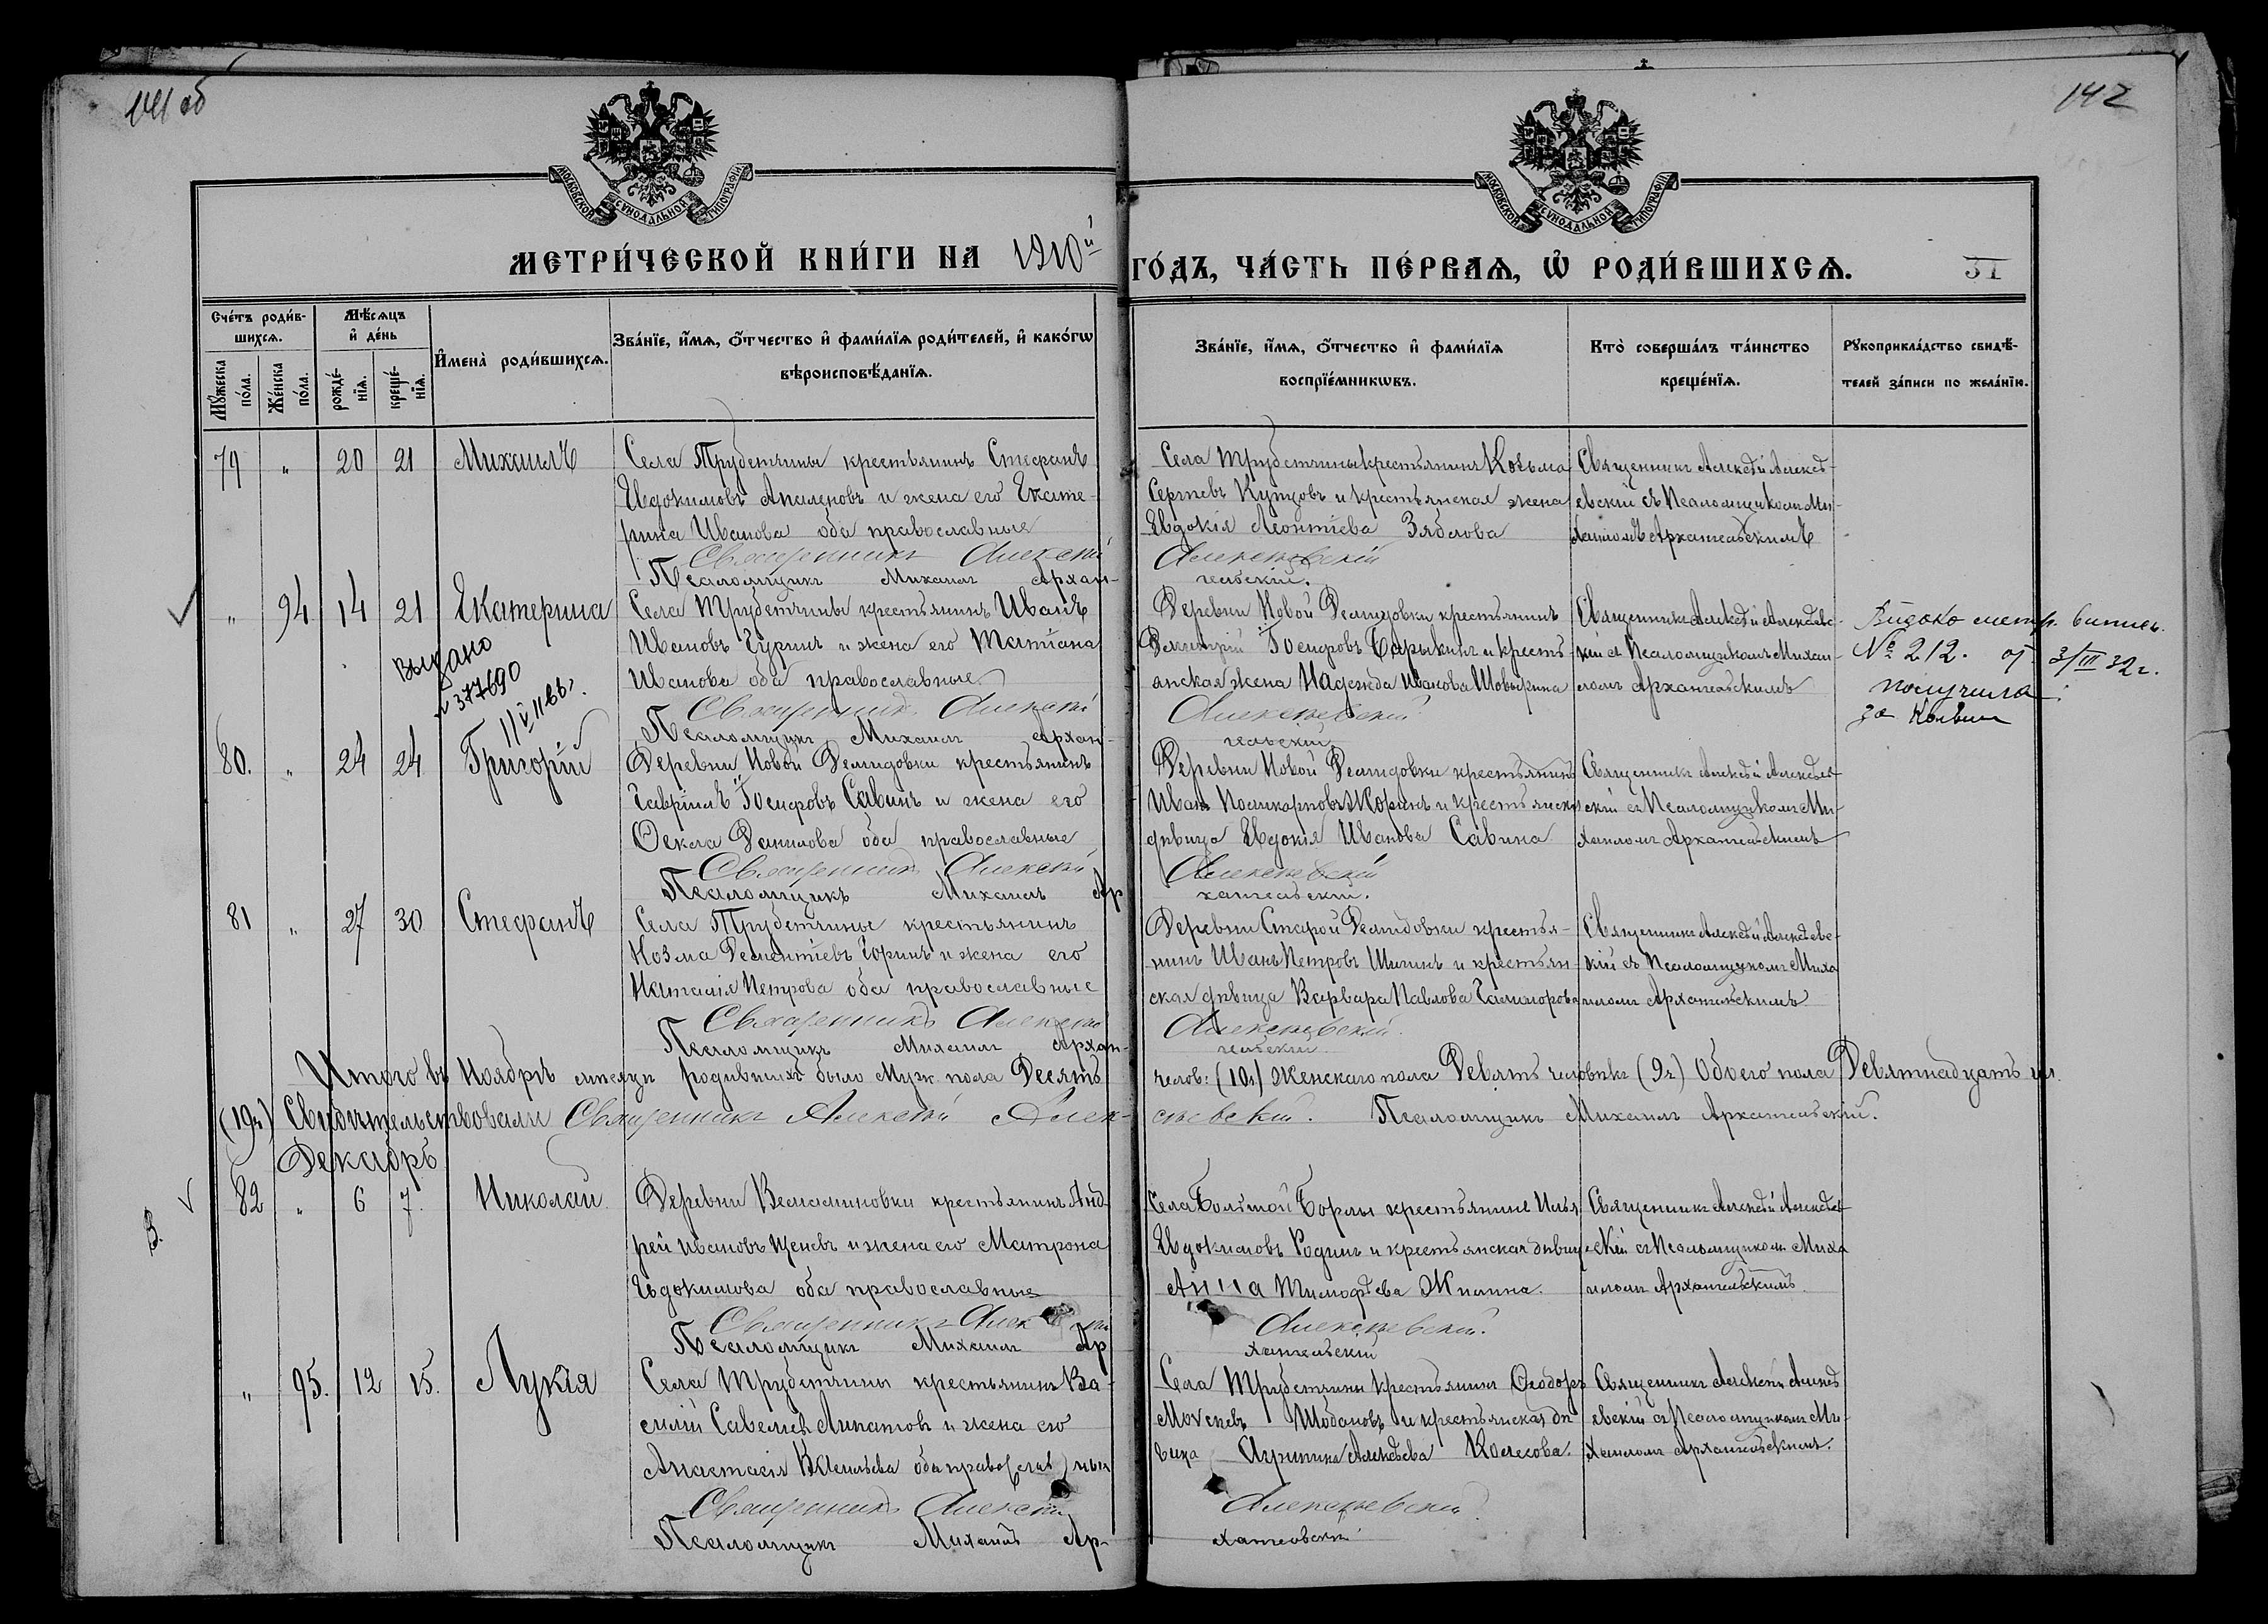 141 об
142
МОСКОВСКОЙ СѴНОДАЛЬНОЙ ТИПОГРАФІИ
МОСКОВСКОЙ СѴНОДАЛЬНОЙ ТИПОГРАФІИ
МЕТРИ́ЧЕСКОЙ КНИ́ГИ НА 1910й
ГО́ДЪ, ЧА́СТЬ ПЕ́РВАѦ, Ѡ҆ РОДИ́ВШИХСѦ.
31
Сче́тъ роди́в-
шихсѧ.
Мꙋ́жеска по́ла.
Же́нска по́ла.
Мѣ́сѧцъ
и҆ де́нь
рожде́нїѧ.
креще́нїѧ.
И҆мена̀ роди́вшихсѧ.
Зва́нїе, и҆́мѧ, ѻ҆́тчество и҆ фами́лїѧ роди́телей, и҆ како́гѡ
вѣроисповѣ́данїѧ.
Зва́нїе, и҆́мѧ, ѻ҆́тчество и҆ фами́лїѧ
воспрїе́мникѡвъ.
Кто̀ соверша́лъ та́инство
креще́нїѧ.
Рꙋкоприкла́дство свидѣ́-
телей за́писи по жела́нїю.
79 " 20 21 Михаилъ
Села Трубетчины крестьянинъ Стефанъ
Евдокимовъ и жена его Екате-
рина Иванова оба православные
Священникъ Алексій
Псаломщикъ МихаилъАрхан-
Села Трубетчины крестьянинъ Козьма
Сергѣевъ Купцовъ и крестьянская жена
Евдокія Леонтіева Зяблова
Алексѣевскій
гельскій.
Священникъ Алексѣй Алексѣ-
евскій съ Псаломщикомъ Ми-
хаиломъ Архангельскимъ
" 94 14 21 Екатерина
Выдано
№ 377690
Села Трубетчины крестьянинъ Иванъ
Ивановъ Гуринъ и жена его Татіана
Иванова оба православные
Священникъ Алексій
Псаломщикъ Михаилъ Архан-
Деревни Новой Демидовки крестьянинъ
Димитрій Іосифовъ Барыкинъ и кресть-
янская жена Надежда Иванова
Алексѣевскій
гельскій
Священникъ Алексѣй Алексѣевс-
кій съ Псаломщикомъ Михаи-
ломъ Архангельскимъ
№ 212. от 3/III 32 г.
получила
80. " 24 24 Григорій
Деревни Новой Демидовки крестьянинъ
Гавріилъ Іосифовъ Савинъ и жена его
Ѳекла Данилова оба православные
Священникъ Алексій
Псаломщикъ Михаилъ Ар
Деревни Новой Демидовки крестьянинъ
Иванъ Поликарповъ Жоринъ и крестьянск
дѣвица Евдокія Иванова Савина
Алексѣевскій
хангельскій.
Священникъ Алексѣй Алексѣев-
скій съ Псаломщикомъ Ми-
хаиломъ Архангельскимъ
81 " 27 30 Стефанъ
Села Трубетчины крестьянинъ
Козма Дементіевъ Горинъ и жена его
Наталія Петрова оба православные
Священникъ Алексій
Псаломщикъ Михаилъ Архан-
Деревни Старой Демидовки крестья-
нинъ Иванъ Петровъ Шигинъ и крестьян-
ская дѣвица Варвара Павлова
Алексѣевскій
гельскій
Священникъ Алексѣй Алексѣевс-
кій съ Псаломщикомъ Миха
иломъ Архангельскимъ
Итого въ Ноябрѣ мѣсяцѣ родившихъ было Муж. пола Десять
челов: (10ч) Женскаго пола Девять человѣкъ (9ч) Обоего пола Девятнадцать чел.
(19ч) Свидѣтельствовали Священникъ Алексій Алек-
сѣевскій. Псаломщикъ Михаилъ Архангельскій.
Декабрь
82 " 6 7. Николай
Деревни Вельяминовки крестьянинъ Анд-
рей Ивановъ Щеневъ и жена его Матрона
Евдокимова оба православные
Священникъ Алексій
Псаломщикъ Михаилъ Ар
Села Большой Борлы крестьянинъ Илья
Евдокимовъ Родинъ и крестьянская дѣвиц
Анна Тимофѣева Жилина.
Алексѣевскій.
хангельскій
Священникъ Алексѣй Алексѣев-
скій съ Псаломщикомъ Миха
иломъ Архангельскимъ
" 95. 12 15. Лукія
Села Трубетчины крестьянинъ Ва-
силій Савельевъ Липатовъ и жена его
Анастасія Васильева оба православные
Священникъ Алексій
Псаломщикъ Михаилъ Ар-
Села Трубетчины крестьянинъ Ѳеодоръ
Моѵсеевъ Шобановъ и крестьянская дѣ
вица Агрипина Алексѣева Колесова.
Алексѣевскій
хангельскій
Священникъ Алексѣй Алексѣ
евскій съ Псаломщикомъ Ми-
хаиломъ Архангельскимъ.